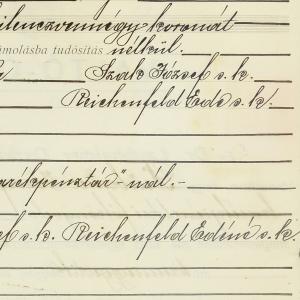 ilenczvennégy koronát
ámolásba tudósítás nélkül.
Szak József s. k.
Reichenfeld Ede s. k.
arékpénztár"-nál.-
ef s. k. Reichenfeld Edéné s. k.